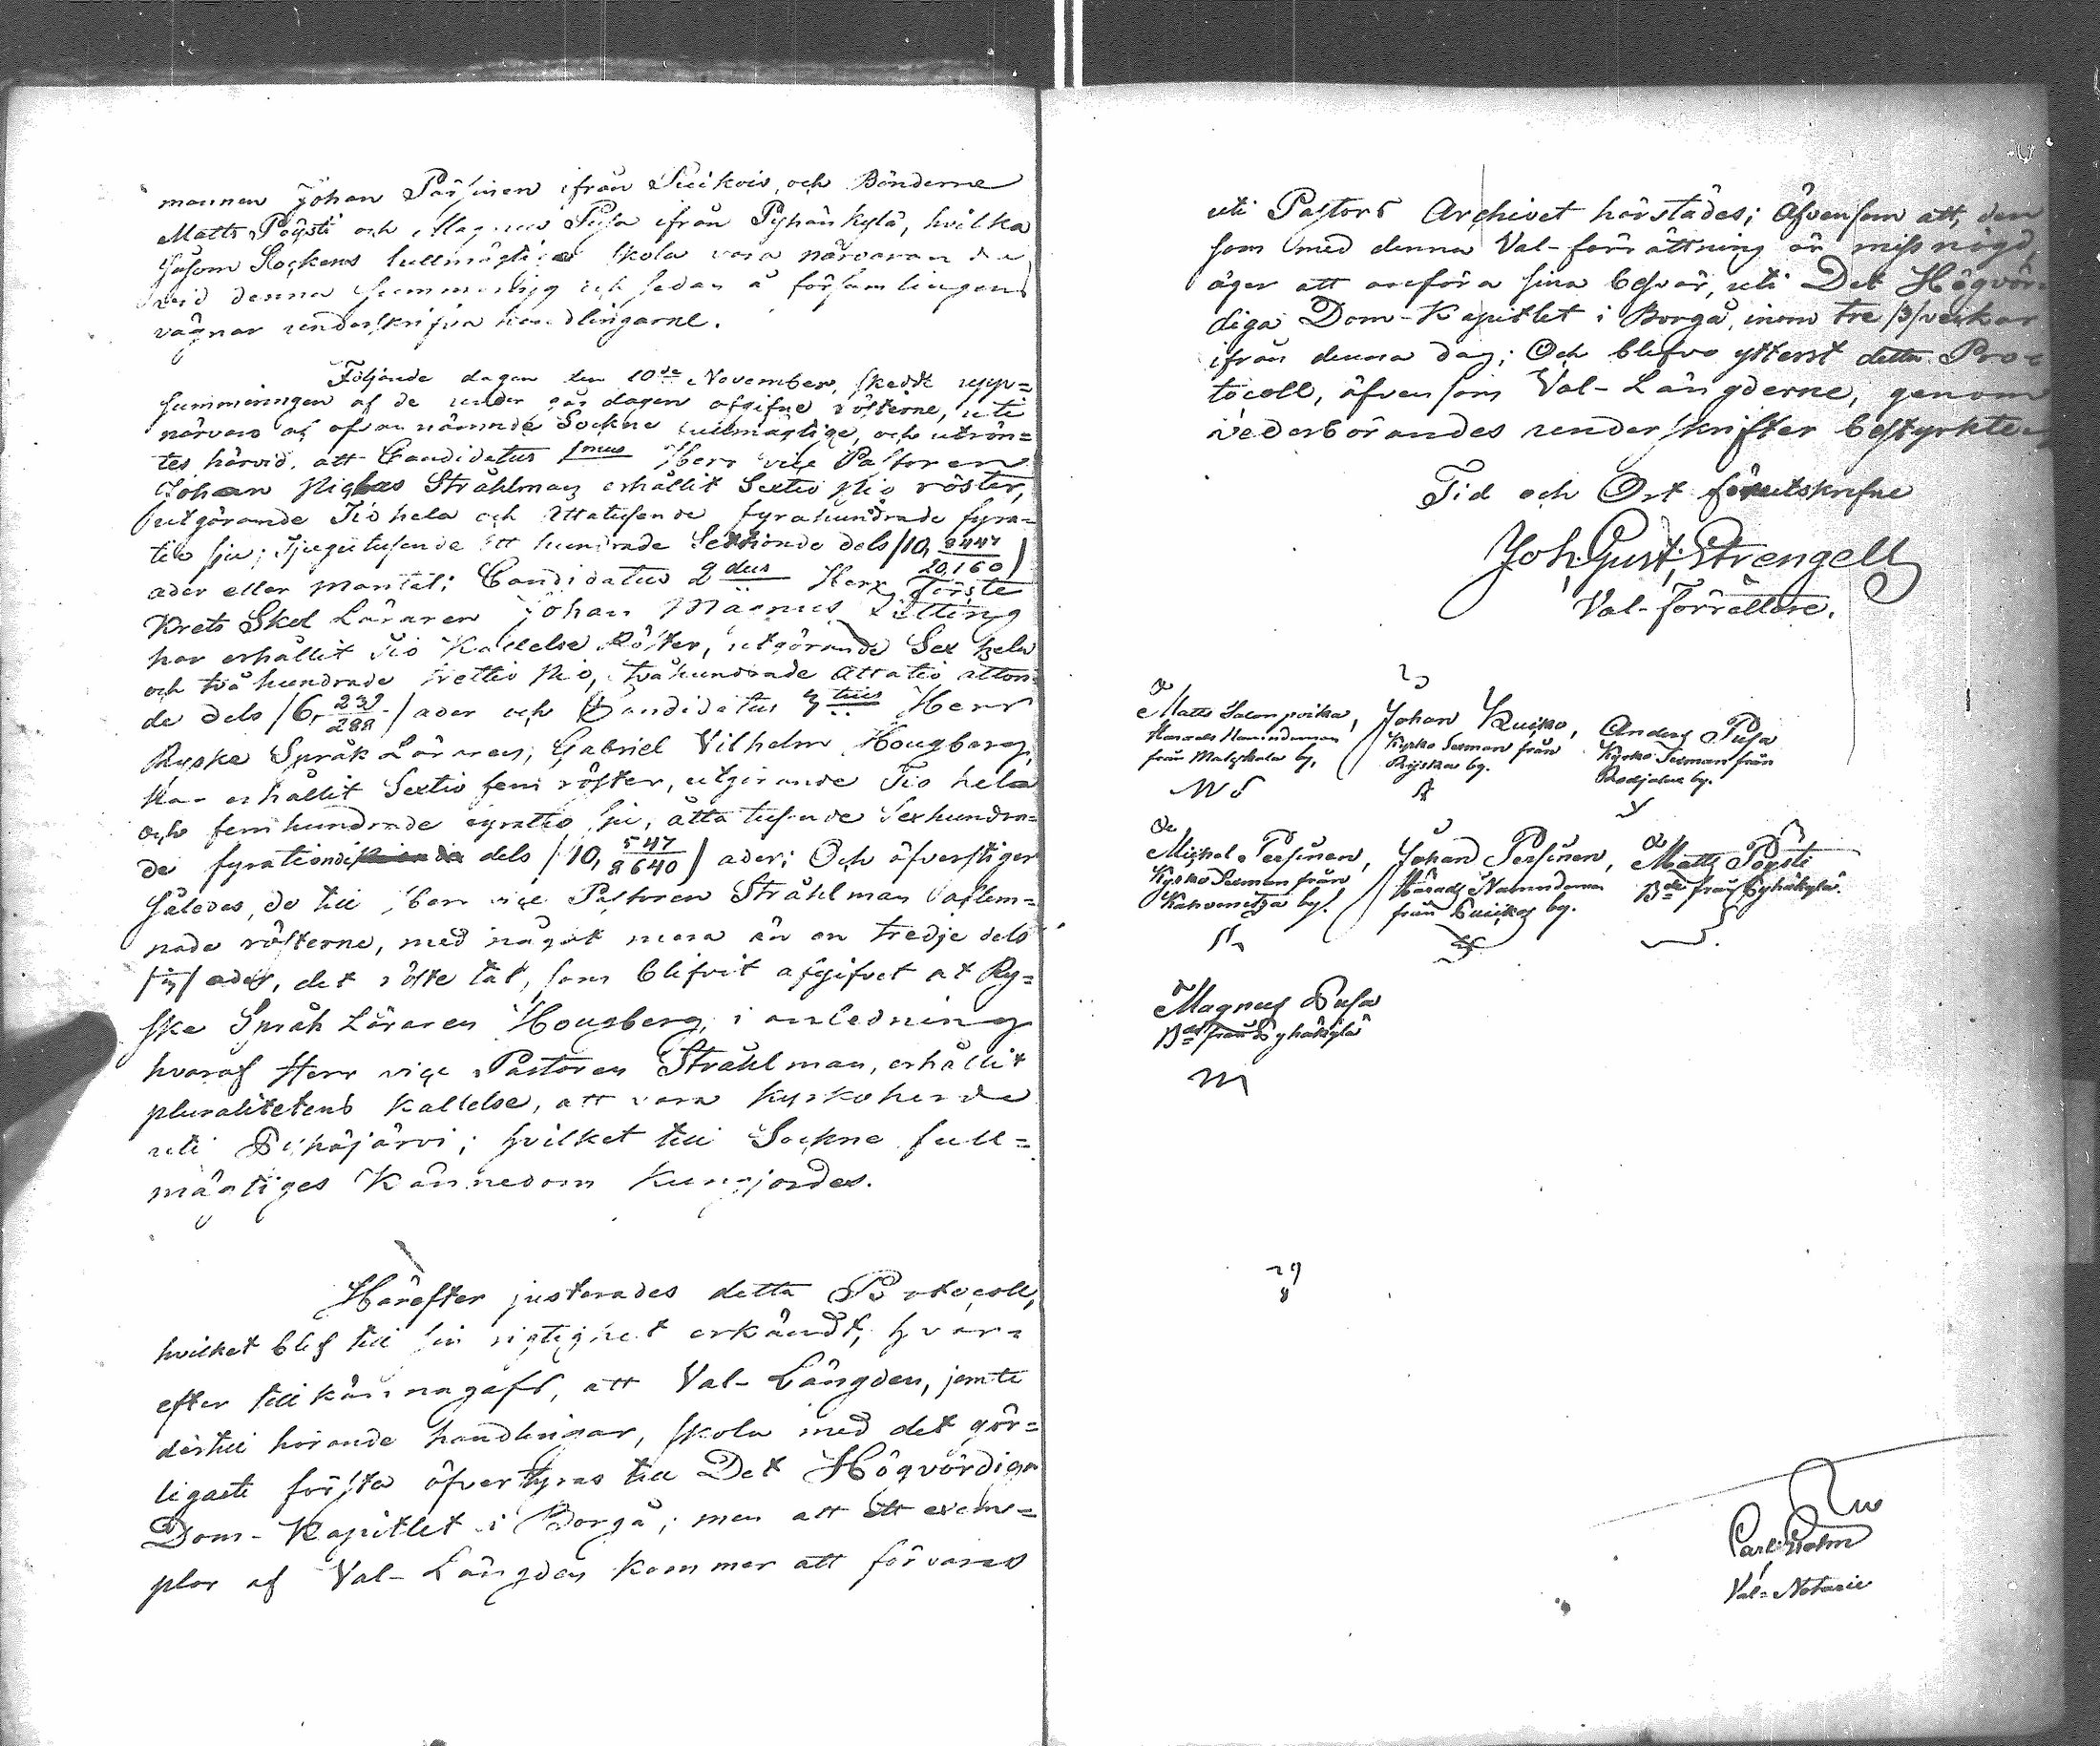 mannen Johan Pärsinen ifrån Suikois, och Bönderne
Matts Pöysti och Magnus Pusa ifrån Pyhänkylä, hvilka
såsom Sockens fullmägtige skola vara närvarande
vid denna summering och sedan å församlingens
vägnar underskrifva handlingarne.
Följande dagen den 10de November, skedde upp=
summeringen af de under gårdagen afgifne rösterne, uti
närvaro af ofvannämnde Sockne fullmägtige, och utrön=
tes härvid, att Candidatus 1mus Herr vice Pastoren
Johan Niclas Stråhlman erhållit Sextio Nio röster,
utgörande Tio hela och Åttatusende fyrahundrade fyra=
tio sju; Tjugutusende Ett hundrade Sextionde dels /10, 8447/20,160/
ader eller mantal; Candidatus 2dus Herr Förste
Krets Skol Läraren Johan Magnus
har erhållit Tio Kallelse Röster, utgörande Sex hela
och två hundrade trettio Nio, tvåhundrade Åttatio åtton=
de dels /6, 239/288/ ader och Candidatus 3tius Herr
Ryske Språk Läraren, Gabriel Vilhelm Hougberg,
har erhållit Sextio fem röster, utgörande Tio hela
och femhundrade fyratio sju, åtta tusende Sexhundra=
de fyrationde dels /10, 547/8640/ ader; Och öfverstiger
således, de till Herr vice Pastoren Stråhlman aflem=
nade rösterne, med något mera än en tredje dels
/1/3/ ader, det röste tal, som blifvit afgifvet åt Ry=
ske Språk Läraren Hougberg, i anledning
hvaraf Herr vice Pastoren Stråhlman, erhållit
pluralitetens Kallelse, att vara Kyrkoherde
uti Pyhäjärvi; hvilket till Sockne full=
mägtiges Kännedom Kungjordes.
Härefter justerades detta Protocoll,
hvilket blef till sin rigtighet erkändt, hvar=
efter tillkännagafs, att Val-Längden, jemte
dertill hörande handlingar, skola med det gör=
ligaste första öfverstyras till Det Högvördiga
Dom-Kapitlet i Borgå; men att ett exem=
plar af Val-Längden kommer att förvaras
uti Pastors Archivet härstädes; Äfvensom att, den
som med denna Val-förrättning är missnögd,
äger att anföra sina besvär, uti Det Högvör=
diga Dom-Kapitlet i Borgå, inom tre /3/ veckor
ifrån denna dag; Och blefvo ytterst detta Pro=
tocoll, äfvensom Val-Längderne, genom
vederbörandes underskrifter bestyrkte.
Tid och Ort förutskrefne
Joh. Gust. Strengell
Val-Förrättare.
Matts Salonpoika, Johan Kuiko, Anders Pusa
Härads Nämndeman Kyrko Sexman från Kyrko Sexman från
från Matskala by, Riiska by. by.
Michel Persinen, Johan Persinen, Matts Pöysti
Kyrko Sexman från Härads Nämndeman Bde från Pyhäkylä.
Kahvenitsa by. från by.
Magnus Pusa
Bde från Pyhäkylä
M
Carl Holm
Val-Notarie